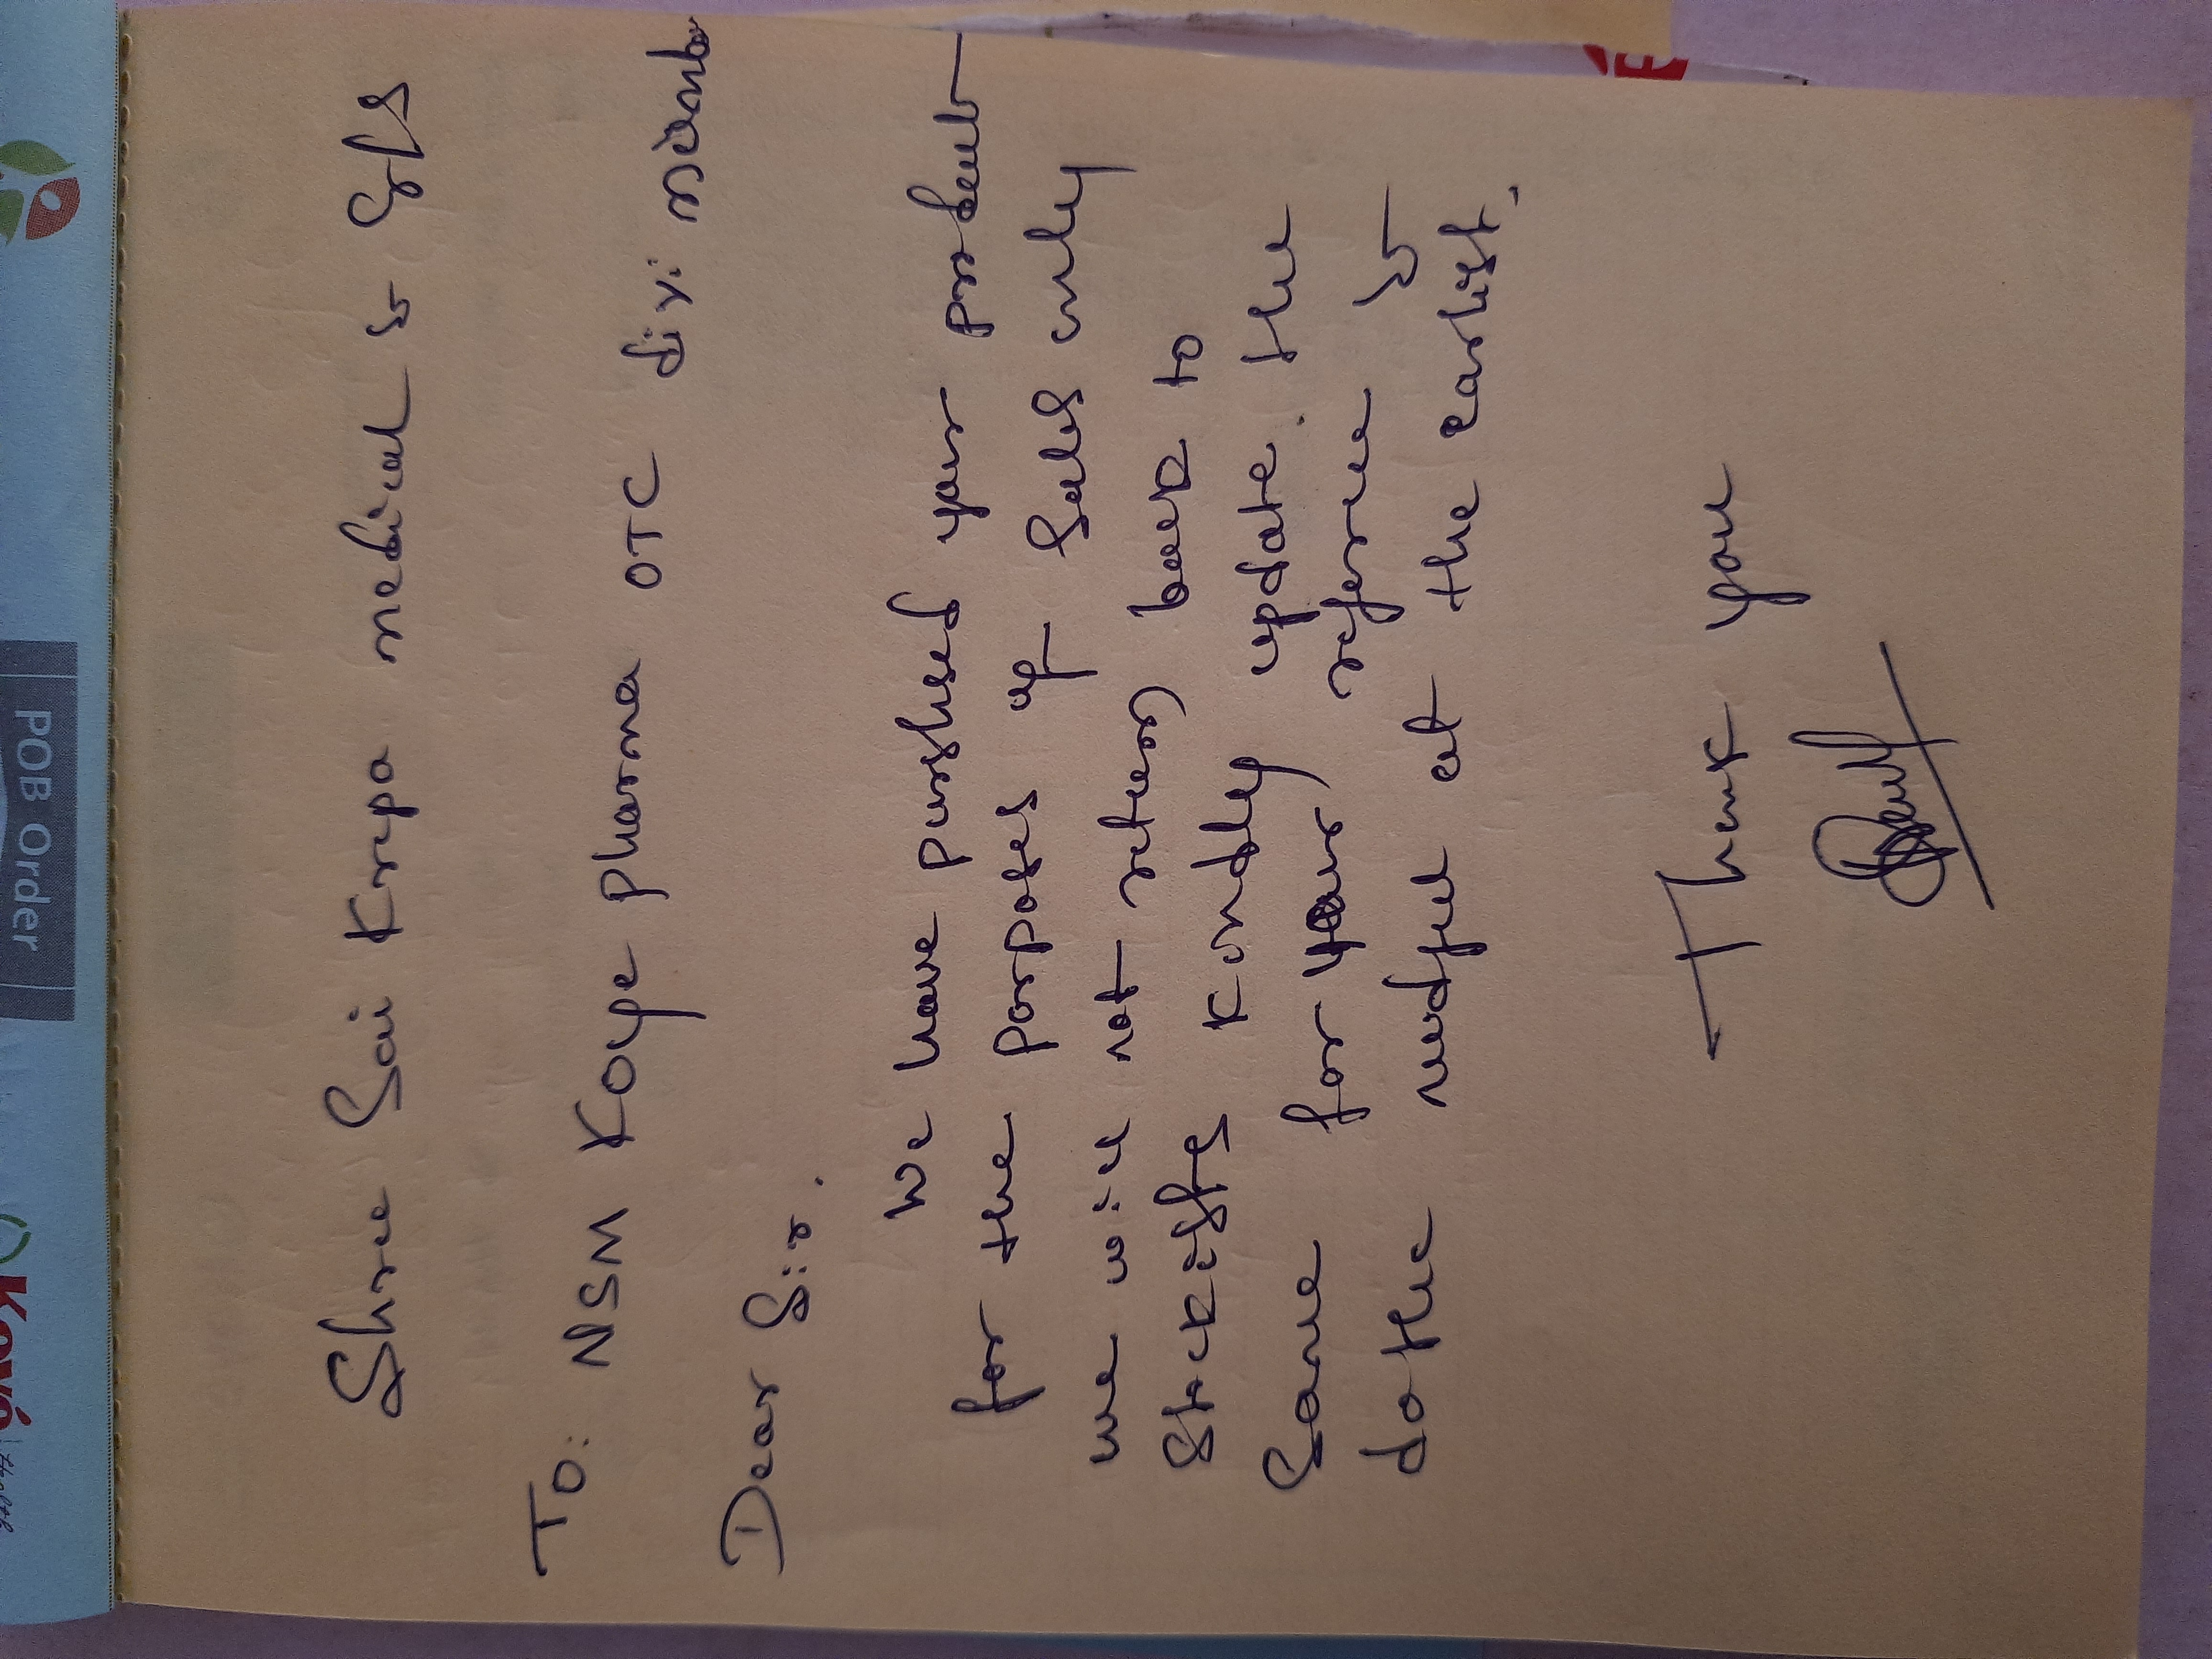 Shree Sai Krupa medical & Gfs
To: NSM Koye pharma OTC div:
Dear Sir.
We have purshsed your
for the porposes of Sales only
we will not return back to
Stockists Kindly update the
Same for your referee &
do the nedful at the earlist.
Thank you
POB Order
Koye